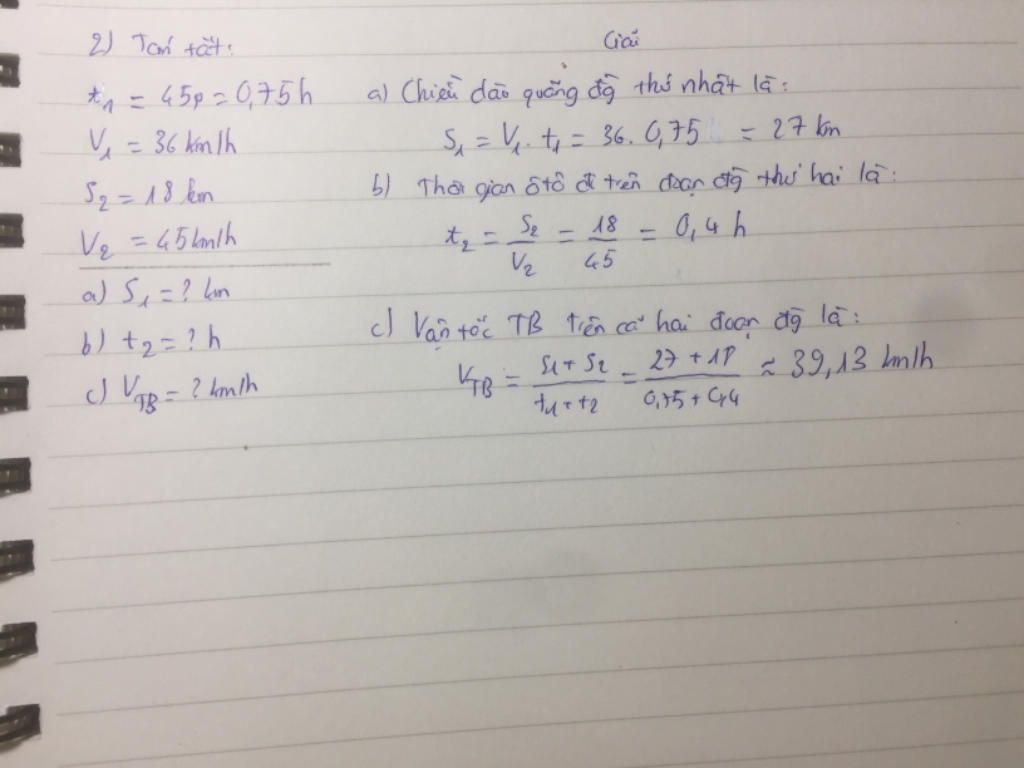 2) Tóm tắt:
t₁ = 45p = 0,75h
V₁ = 36 km/h
S₂ = 18 km
V₂ = 45km/h
a) S₁ = ? km
b) t₂ = ? h
c) V_TB = ? km/h
Giải
a) Chiều dào quãng đg thứ nhất là:
S₁ = V₁. t₁ = 36. 0,75 = 27 km
b) Thời gian ôtô đi trên đoạn đg thứ hai là:
t₂ = S₂/V₂ = 18/45 = 0,4 h
c) Vận tốc TB trên cả hai đoạn đg là:
V_TB = (S₁ + S₂)/(t₁ + t₂) = (27 + 18)/(0,75 + 0,4) ≈ 39,13 km/h